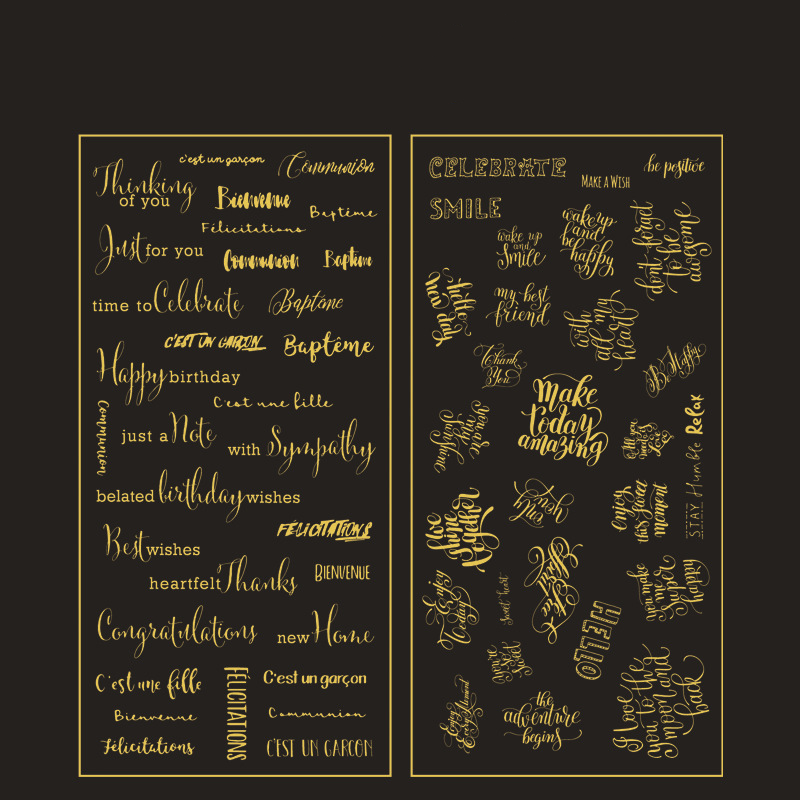 c'est un garçon
Communion
Thinking
of you
Bienvenue
Baptême
Félicitations
Just for you
Communion
Baptême
time to Celebrate
Baptême
C'EST UN GARÇON
Baptême
Happy birthday
C'est une fille
Communion
just a Note
with Sympathy
belated birthday wishes
FÉLICITATIONS
Best wishes
heartfelt Thanks
BIENVENUE
Congratulations
new Home
C'est une fille
FÉLICITATIONS
C'est un garçon
Bienvenue
Communion
Félicitations
C'EST UN GARÇON
CELEBRATE
MAKE A WISH
be positive
SMILE
wake up
and
Smile
wake up
and
be
happy
don't forget
to be
awesome
hello
my best
friend
with
all my
heart
Thank
You
B Happy
make
today
amazing
you are
my
Sunshine
Relax
Humble
STAY
live
shine
together
enjoy
this sweet
moment
Enjoy
Today
sweet heart
HELLO
you make
me super
happy
you're
so
sweet
Enjoy
the
adventure
begins
I love
you to the
moon and
back